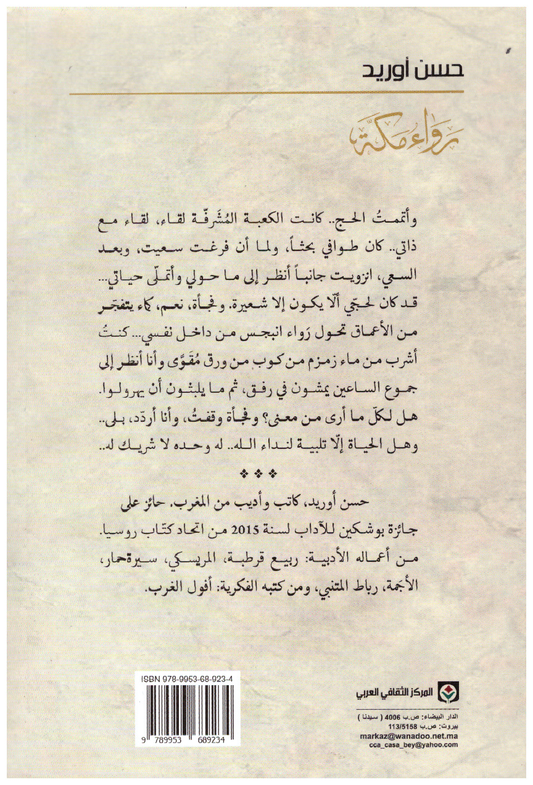 حسن أوريد
رَوَاءُ مَكَّة
وأتممتُ الحج.. كانت الكعبة المُشَرفّة لقاء، لقاء مع
ذاتي.. كان طوافي بحثاً، ولما أن فرغت سعيت، وبعد
السعي، انزويت جانباً أنظر إلى ما حولي وأتملّى حياتي...
قد كان لحجّي ألّا يكون إلا شعيرة. وفجأة، نعم، كماء يتفجّر
من الأعماق تحول رَواء انبجس من داخل نفسي... كنتُ
أشرب من ماء زمزم من كوب من ورق مُقَوًّى وأنا أنظر إلى
جموع الساعين يمشون في رفق، ثم ما يلبثون أن يهرولوا.
هل لكلّ ما أرى من معنى؟ وفجأة وقفتُ، وأنا أردّد، بلى..
وهل الحياة إلّا تلبية لنداء الله.. له وحده لا شريك له..
حسن أوريد، كاتب وأديب من المغرب. حائز على
جائزة بوشكين للآداب لسنة 2015 من اتحاد كتّاب روسيا.
من أعماله الأدبية: ربيع قرطبة، المريسكي، سيرة حمار،
الأجمة، رباط المتنبي، ومن كتبه الفكرية: أفول الغرب.
ISBN 978-9953-68-923-4
9 789953 689234
المركز الثقافي العربي
الدار البيضاء: ص.ب 4006 ( سيدنا )
بيروت: ص.ب 113/5158
markaz@wanadoo.net.ma
cca_casa_bey@yahoo.com